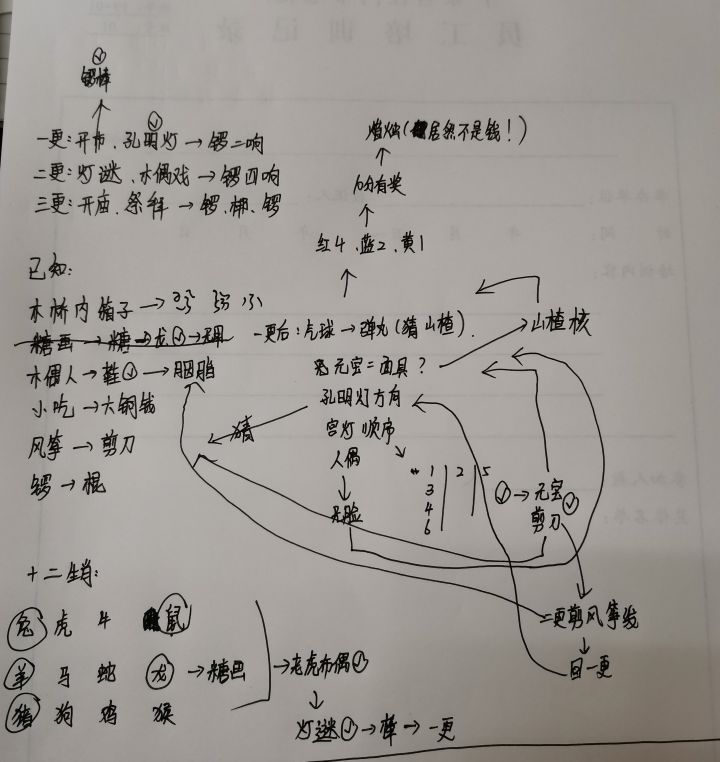 锣棒
一更:开市、孔明灯→锣二响
二更:灯谜、木偶戏→锣四响
三更:开庙、祭拜→锣、梆、锣
焰火(居然不是钱!)
10分有奖
红4、蓝2、黄1
已知:
木桥内箱子→
糖画→糖→龙→无用
木偶人→鞋→胭脂
小吃→大铜钱
风筝→剪刀
锣→棍
一更后:虎球→弹丸(猜山楂).
山楂核
元宝=面具?
孔明灯方向
宫灯顺序
猜
人偶
无脸
1 2 5
3
4
6
→元宝
剪刀
二更剪风筝线
回一更
十二生肖:
兔 虎 牛 鼠
羊 马 蛇 龙→糖画
猪 狗 鸡 猴
→老虎布偶
灯谜→棒→一更
员工培训记录